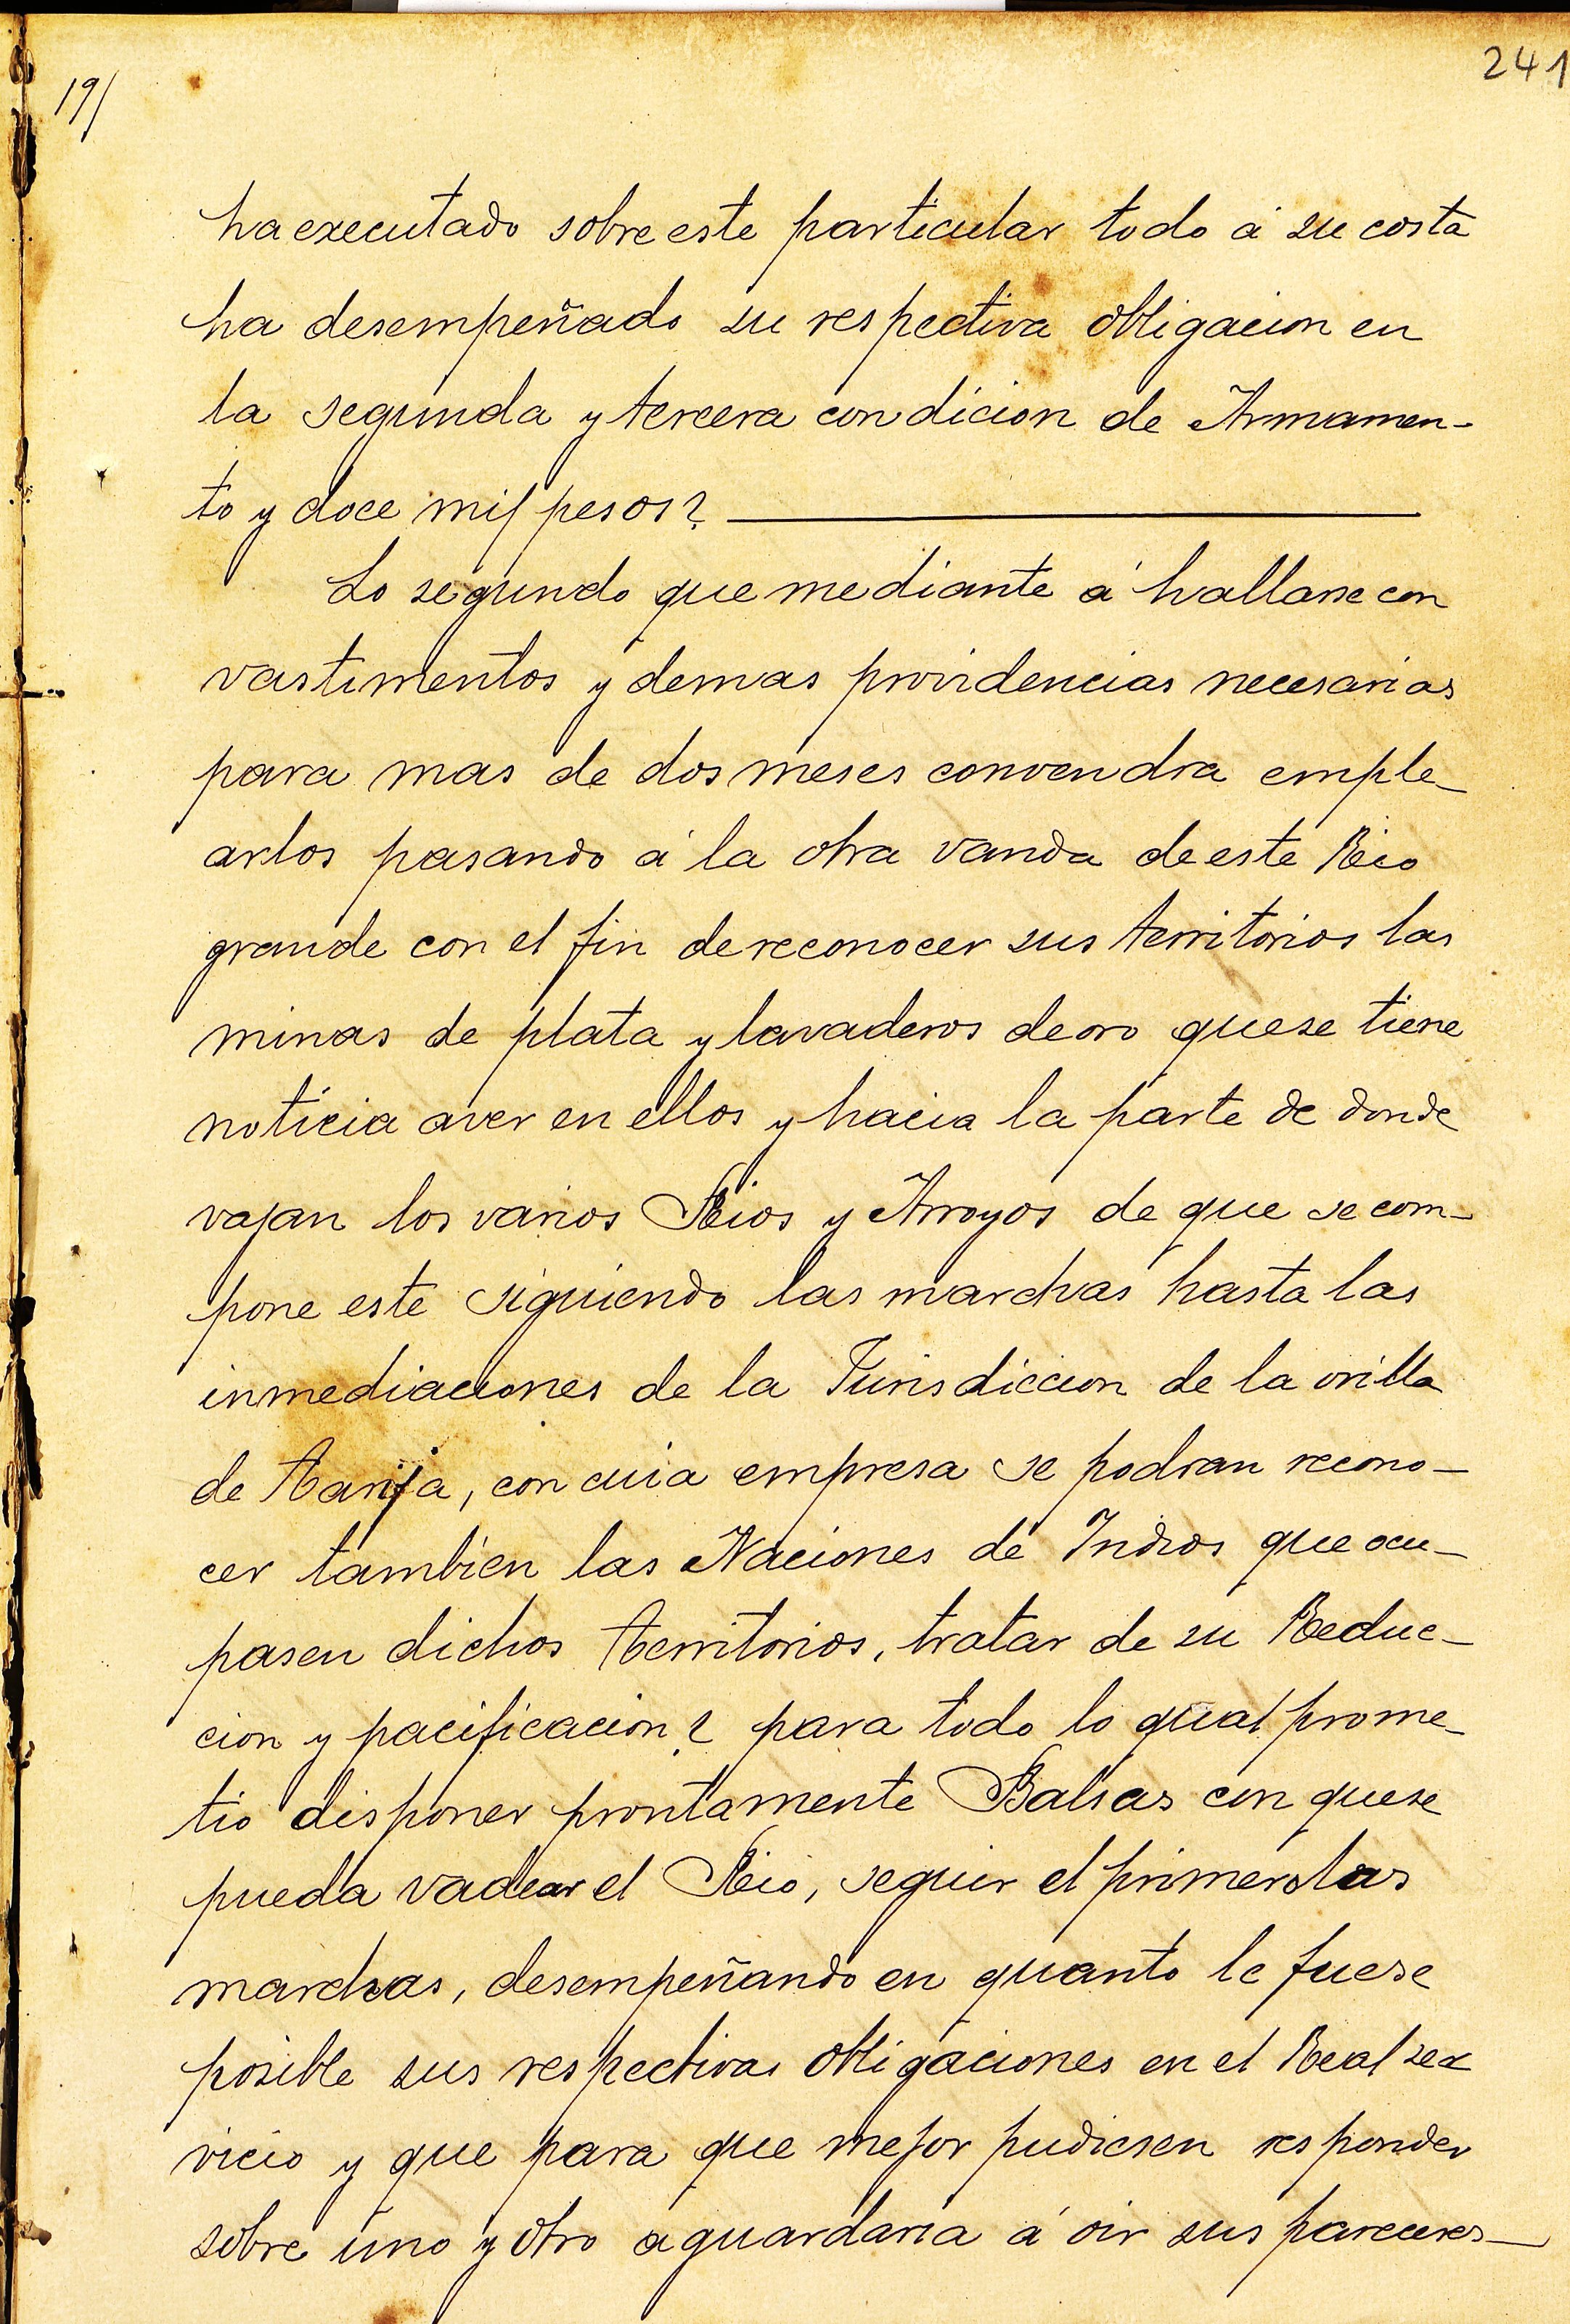 241
19/
ha executado sobre este particular todo á su costa
ha desempeñado su respectiva obligacion en
la segunda y tercera condicion de Armamen-
to y doce mil pesos?
Lo segundo que mediante á hallarse con
vastimentos y demas providencias necesarias
para mas de dos meses convendra emple-
arlos pasando á la otra vanda de este Rio
grande con el fin de reconocer sus territorios las
minas de plata y lavaderos de oro que se tiene
noticia aver en ellos y hacia la parte de donde
vajan los varios Rios y Arroyos de que se com-
pone este siguiendo las marchas hasta las
inmediaciones de la Jurisdiccion de la orilla
de Tarija, con cuia empresa se podran recono-
cer tambien las Naciones de Indios que ocu-
pasen dichos territorios, tratar de su Reduc-
cion y pacificacion? para todo lo qual prome-
tio disponer prontamente Balsas con que se
pueda vadear el Rio, seguir el primero las
marchas, desempeñando en quanto le fuese
posible sus respectivas obligaciones en el Real ser
vicio y que para que mejor pudiesen responder
sobre uno y otro aguardaria á oir sus pareceres